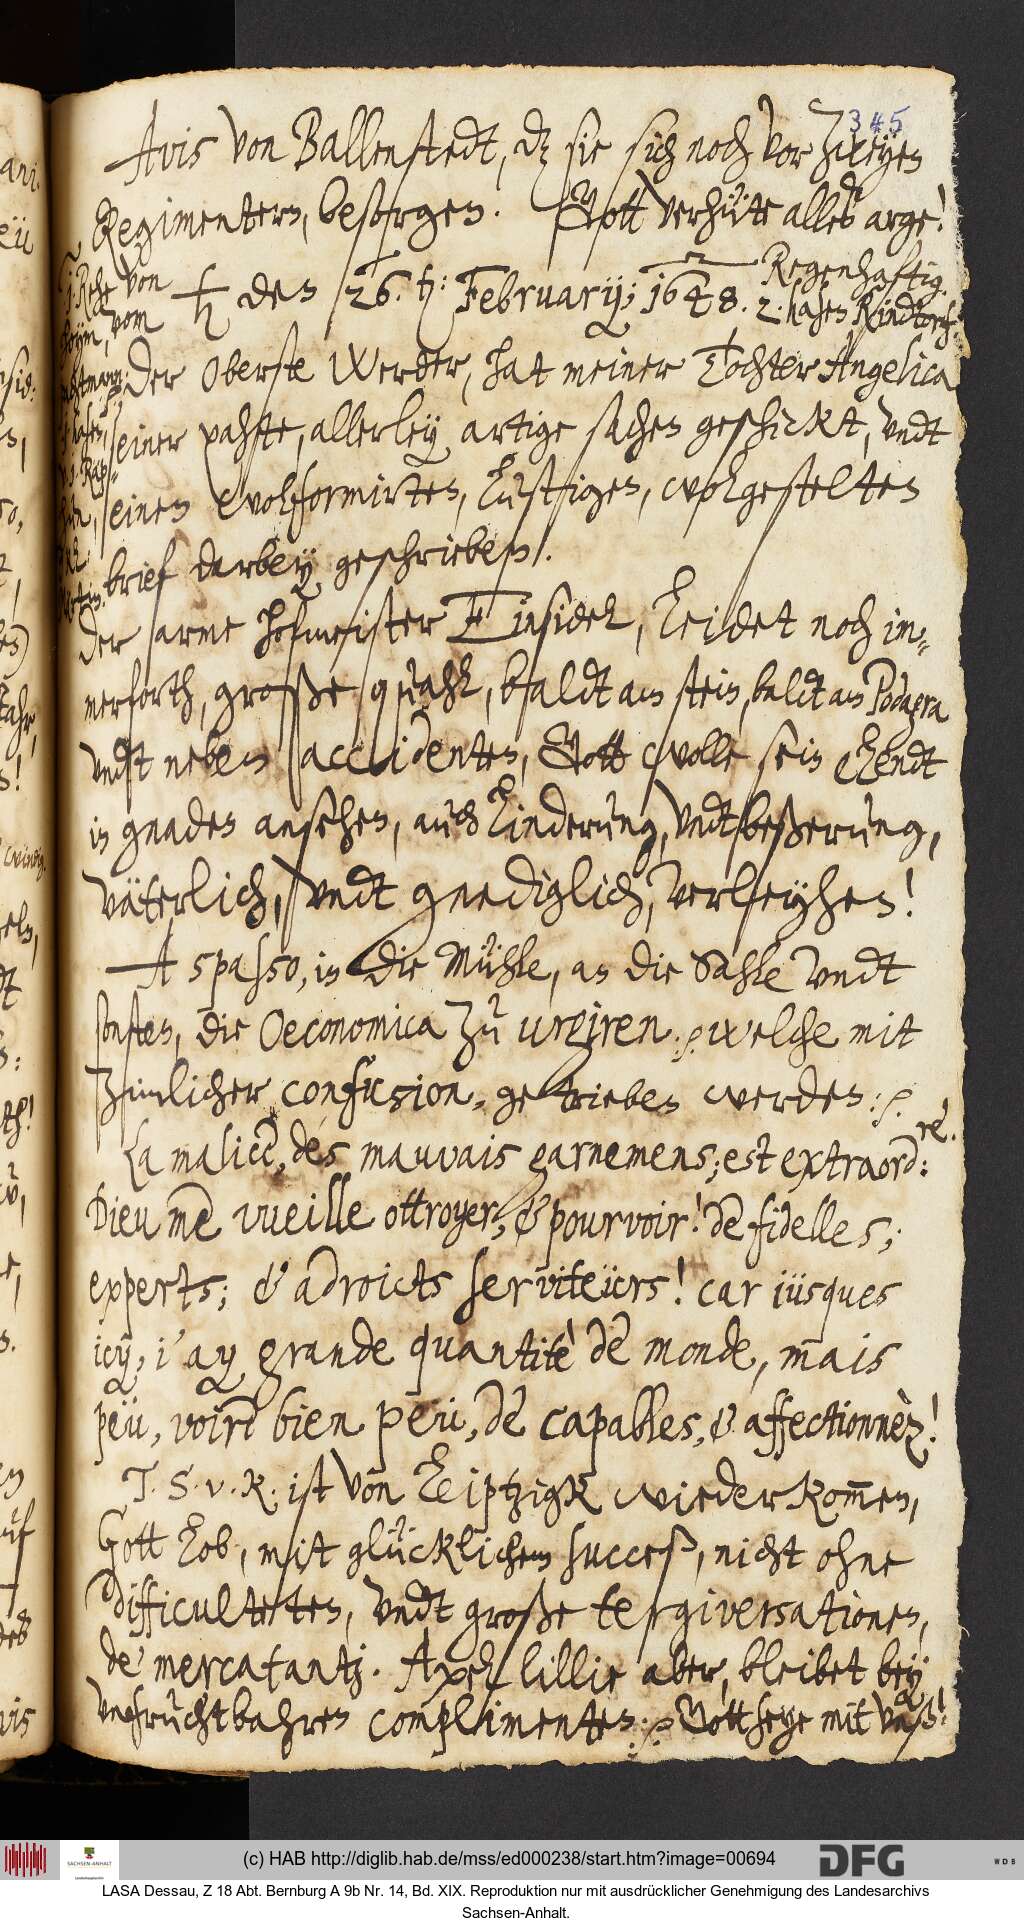 345
Avis von Ballenstedt, dz sie sich noch vor zweyen
Regimentern, besorgen. Gott verhüte alles arge!
♄ den 26. ♄: February; 1648.
Regenhaftig.
2. hasen Rindtorf.
1. Rehe von
Hoym, vom
Amptmann
hasen,
Der Oberste Werder, hat meiner Tochter Angelica
seiner pahte, allerley artige sachen geschickt, undt
einen wolformirten, lustigen, wolgestelten
brief darbey geschrieben.
Der arme hofmeister Einsidel, leidet noch im-
merforth, große quahl, baldt am stein, baldt am Podagra
undt neben accidenten, Gott wolle sein elendt
in gnaden ansehen, auch linderung, undt beßerung,
väterlich, undt gnediglich, verleyhen!
A spasso, in die Mühle, an die Sahle undt
sonsten, die Oeconomica zu urgiren :p welche mit
zimlicher confusion, getrieben werden :p.
La malice, des mauvais garnemens; est extraord:re.
Dieu me vueille ottroyer, & pourvoir! de fidelles;
experts; & adroicts serviteürs! car jüsques
icy, i'ay grande quantitè de monde, mais
peü, voire bien peü, de capables, & affectionnèz!
T. S. v. K. ist von Leiptzigk wieder kommen,
Gott lob, mit glücklichem succeß, nicht ohne
difficulteten, undt große tergiversationen,
de' mercatantj. Axel lillie aber, bleibet bey
unfruchtbahren complimenten :p Gott seye mit unß!
(c) HAB http://diglib.hab.de/mss/ed000238/start.htm?image=00694
SACHSEN-ANHALT
DFG
W D B
LASA Dessau, Z 18 Abt. Bernburg A 9b Nr. 14, Bd. XIX. Reproduktion nur mit ausdrücklicher Genehmigung des Landesarchivs
Sachsen-Anhalt.